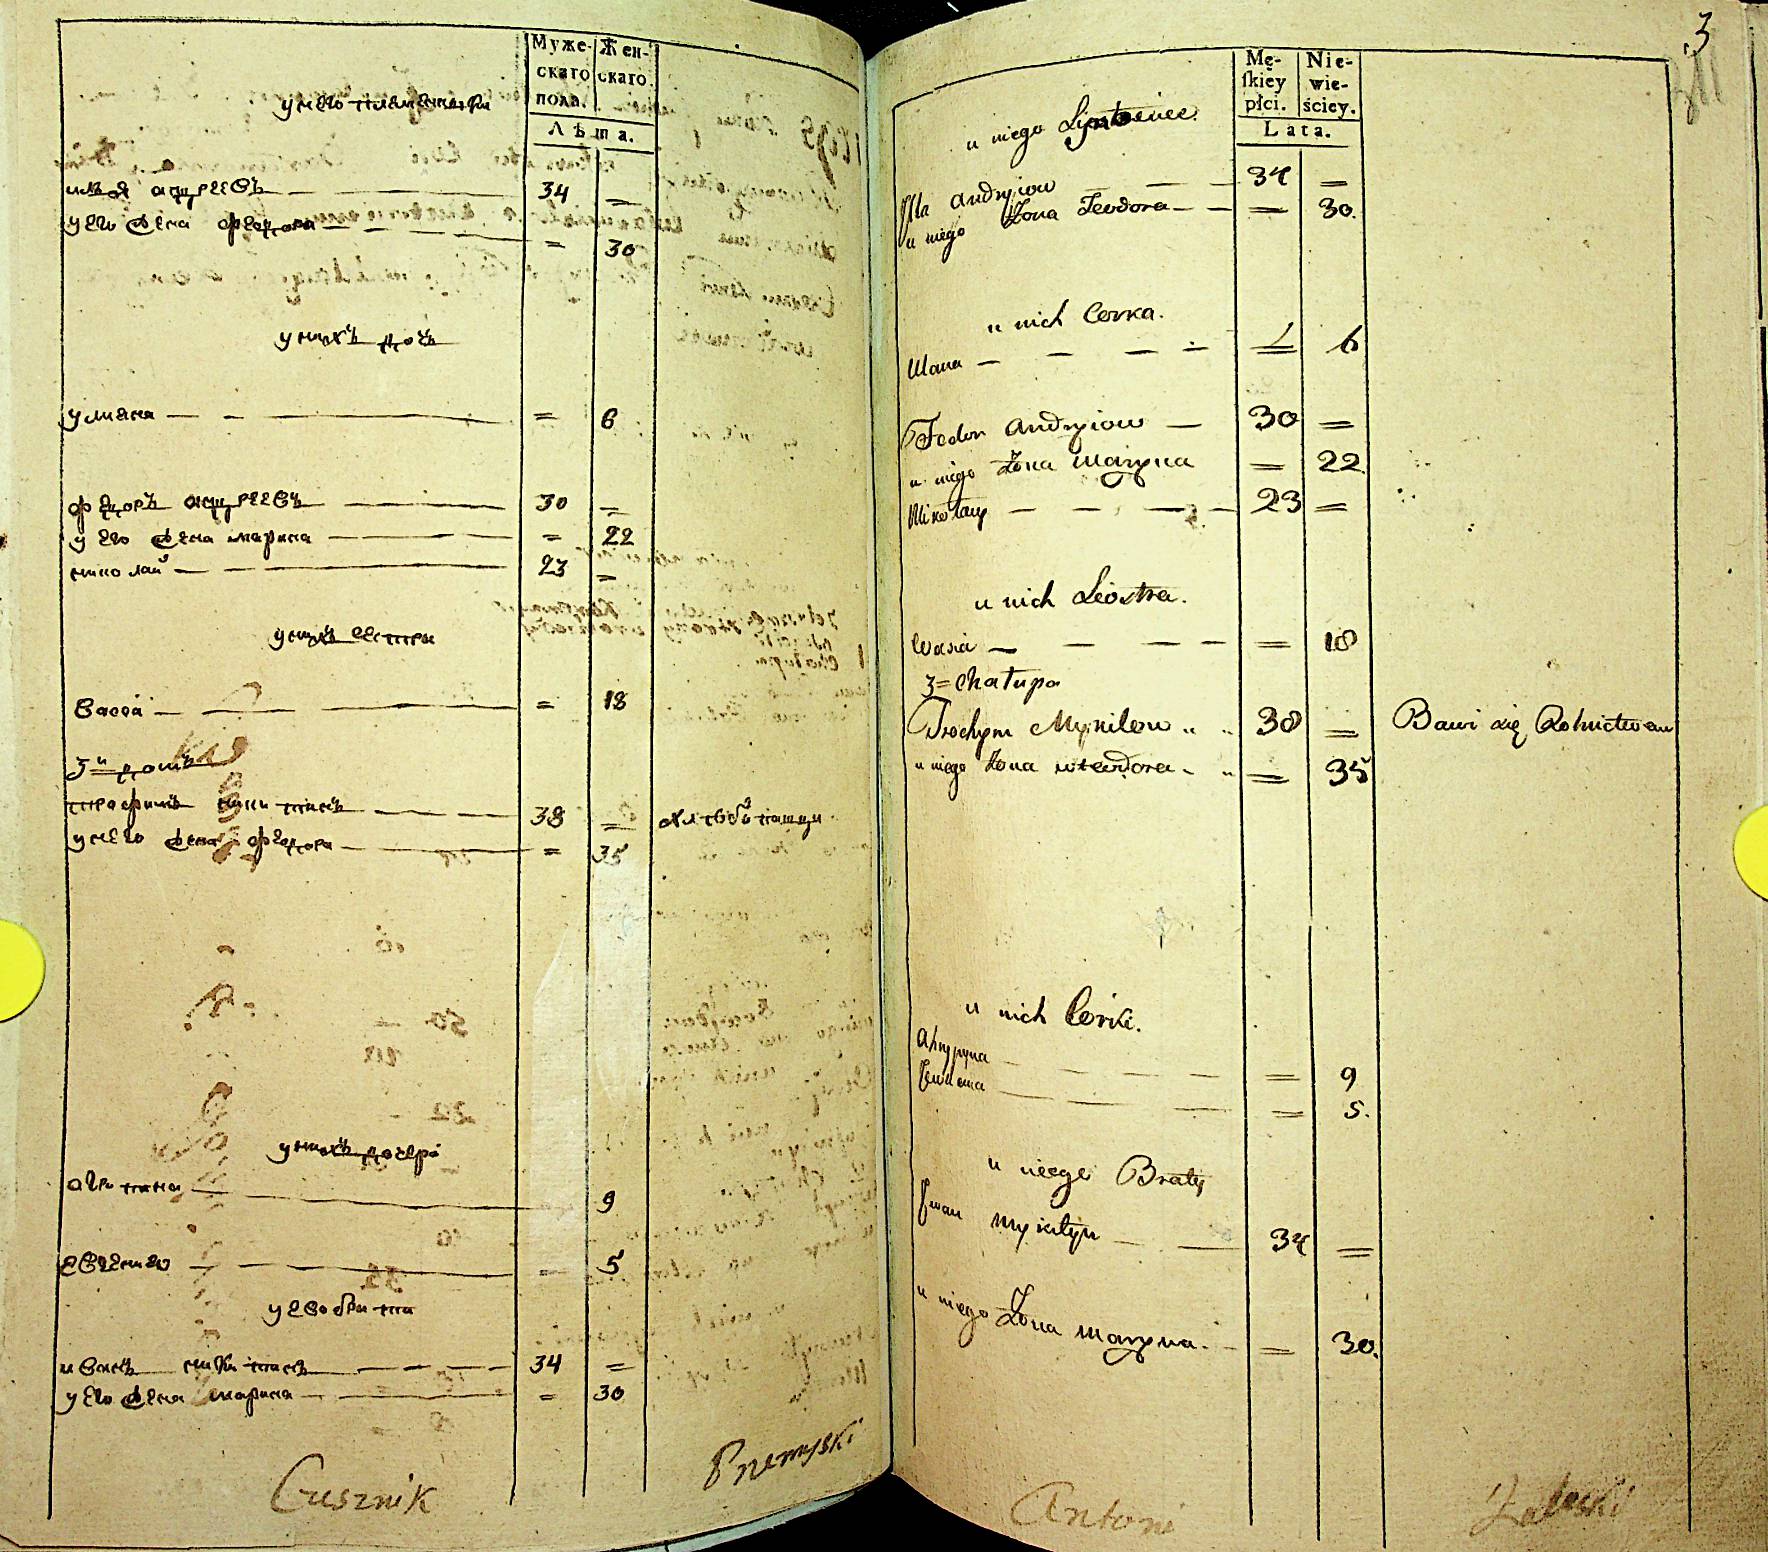 Муже-
скаго
пола.
Жен-
скаго.
Лѣта.
у него племенники
илья андреевъ 34 =
у его жена федора = 30
у нихъ дочь
улиана = 6
федоръ андреевъ 30 =
у его жена марина = 22
николай 23 =
у нихъ сестра
васса = 18
3й домъ
трофимъ никитинъ 38 =
у него жена федора = 35
у нихъ дочери
9
= 5
у его брати
иванъ никитинъ 34 =
у его жена марина = 30
Gusznik
Przemyski
3
Mę-
skiey
płci.
Nie-
wie-
ściey.
Lata.
u niego
Illa Andryiow 34 =
u niego Żona Teodora = 30.
u nich Corka.
= 6
Fedor Andryiow 30 =
u niego Żona Maryna = 22
Mikołay 23 =
u nich Siostra.
Wasia = 18
3 = Chałupa
Trochym Mykiten 38 = Bawi się Rolnictwem
u niego Żona = 35
u nich Corki.
Ahrypyna = 9
= 5.
u niego Braty
Iwan Mykityn 34 =
u niego Żona Maryna. = 30.
Antoni
Zaleski